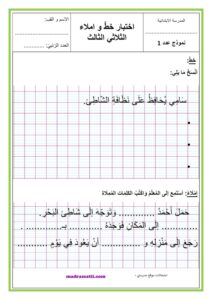 المدرسة الابتدائية
نموذج عدد 1
اختبار خط و املاء
الثلاثي الثالث
الاسم و القب:
العدد الرتبي:
خط:
أنسخ ما يلي:
سامي يُحافِظُ عَلَى نَظَافَةِ الشَّاطِئِ.
إملاء: أستمع إلى المعلم وأكتب الكلمات المملاة
حَمَلَ أَحْمَدُ ............ وَتَوَجَّهَ إِلَى شَاطِئِ البَحْرِ.
............ إِلَى المَكَانِ فَوَجَدَهُ ............ بـ ............
رَجَعَ إِلَى مَنْزِلِهِ و ............ أَنْ يَعُودَ فِي يَوْمٍ ............
madrassatii.com